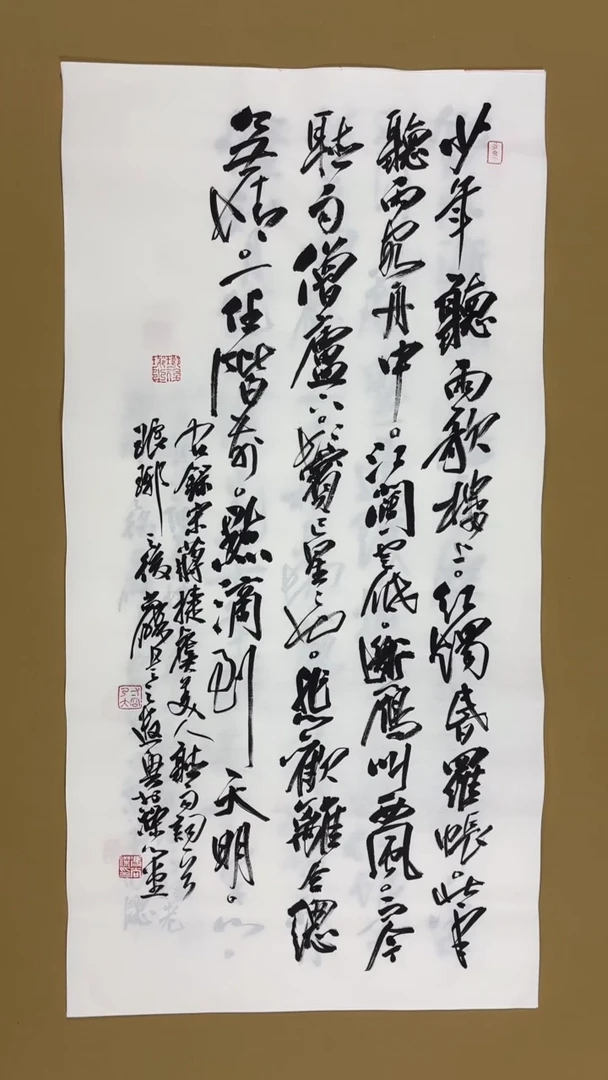 少年聽雨歌樓上。紅燭昏羅帳。壯年
聽雨客舟中。江闊雲低。斷雁叫西風。而今
聽雨僧廬下。鬢已星〻也。悲歡離合總
無情。一任階前。點滴到天明。
右錄宋蔣捷虞美人聽雨詞一首
琅琊